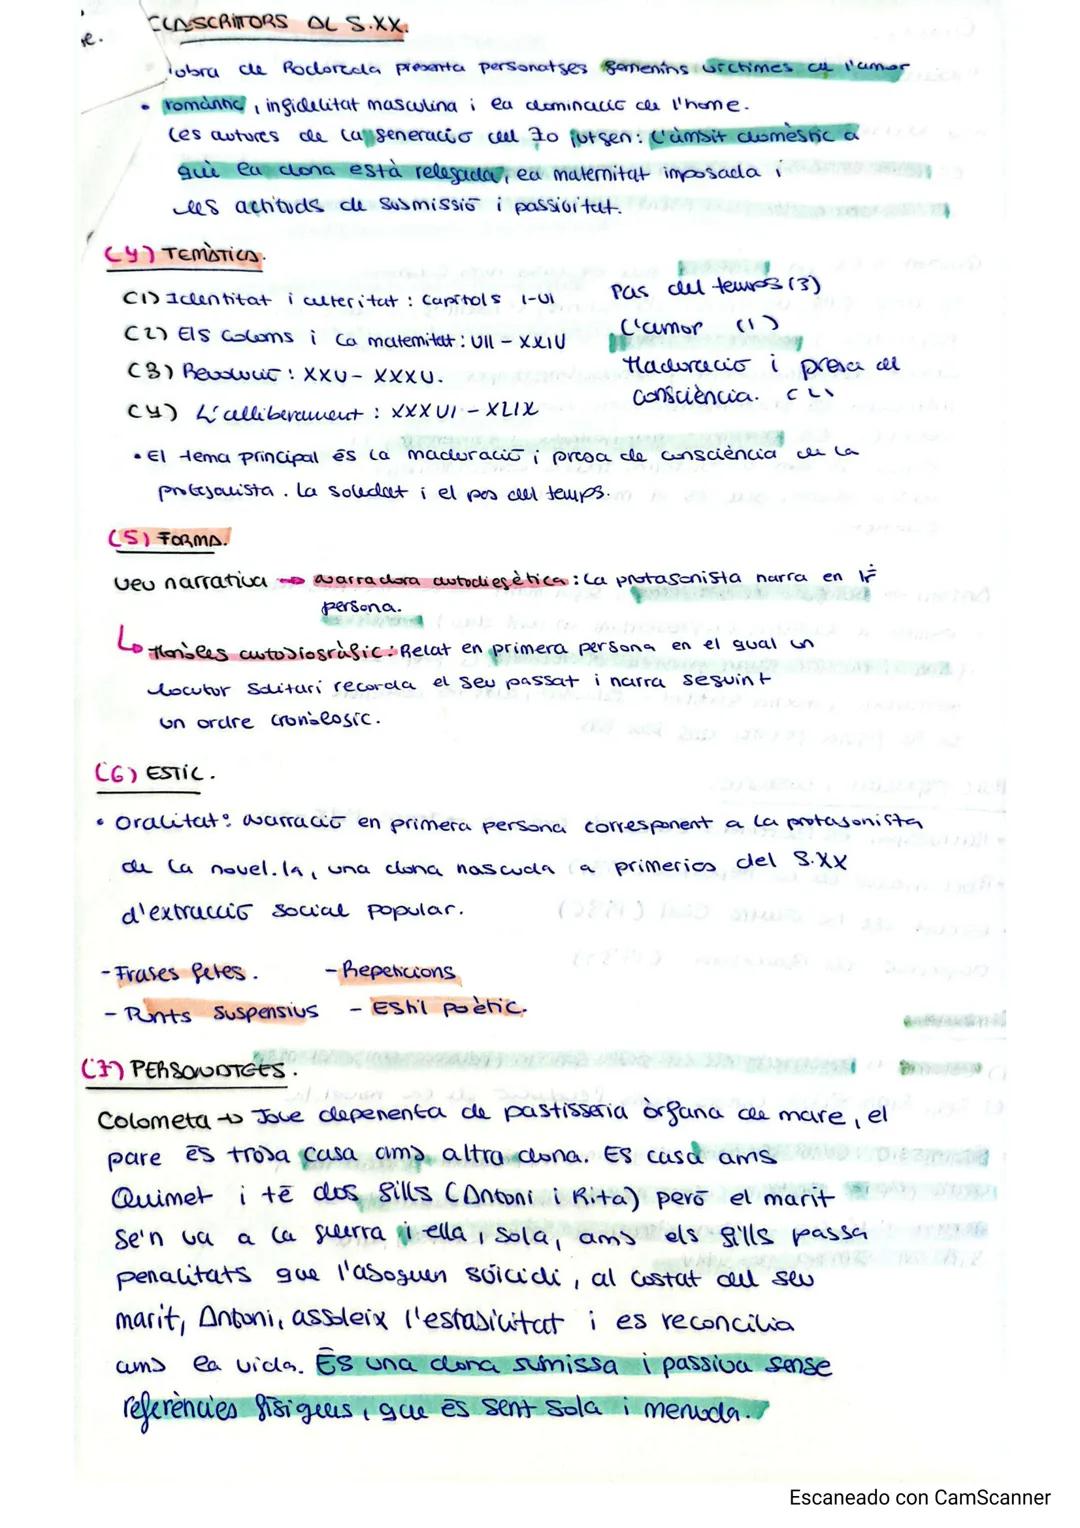 re.
ESCRIPTORS DL S.XX.
l'obra de Rodoreda presenta personatges femenins víctimes de l'amor
• romàntic, infidelitat masculina i la dominació de l'home.
Les autores de la generació del 70 jutgen: l'àmbit domèstic a
què la dona està relegada, la maternitat imposada i
les actituds de submissió i passivitat.
(4) TEMÀTICA.
C1) Identitat i alteritat: Capítols I-VI
C2) Els coloms i la maternitat: VII - XXIV
C3) Revolució: XXV- XXXV.
C4) L'alliberament: XXXVI - XLIX
Pas del temps (3)
L'amor (1)
Maduració i presa de
consciència. (2)
• El tema principal és la maduració i presa de consciència de la
protagonista. La soledat i el pas del temps.
(5) FORMA.
Veu narrativa → narradora autodiegètica: La protagonista narra en 1ª
persona.
↳ Monòleg autobiogràfic: Relat en primera persona en el qual un
locutor solitari recorda el seu passat i narra seguint
un ordre cronòlogic.
(6) ESTIL.
• Oralitat: narració en primera persona corresponent a la protagonista
de la novel.la, una dona nascuda a primerios del S.XX
d'extracció social popular.
- Frases fetes. - Repeticions
- Punts suspensius - Estil poètic.
(7) PERSONATGES.
Colometa → Jove dependenta de pastisseria òrfana de mare, el
pare es troba casa amb altra dona. Es casa amb
Quimet i té dos fills (Antoni i Rita) però el marit
se'n va a la guerra i ella, sola, amb els fills passa
penalitats que l'aboquen suïcidi, al costat del seu
marit, Antoni, assoleix l'estabilitat i es reconcilia
amb la vida. És una dona sumissa i passiva sense
referències físiques, que es sent sola i menuda.
Escaneado con CamScanner